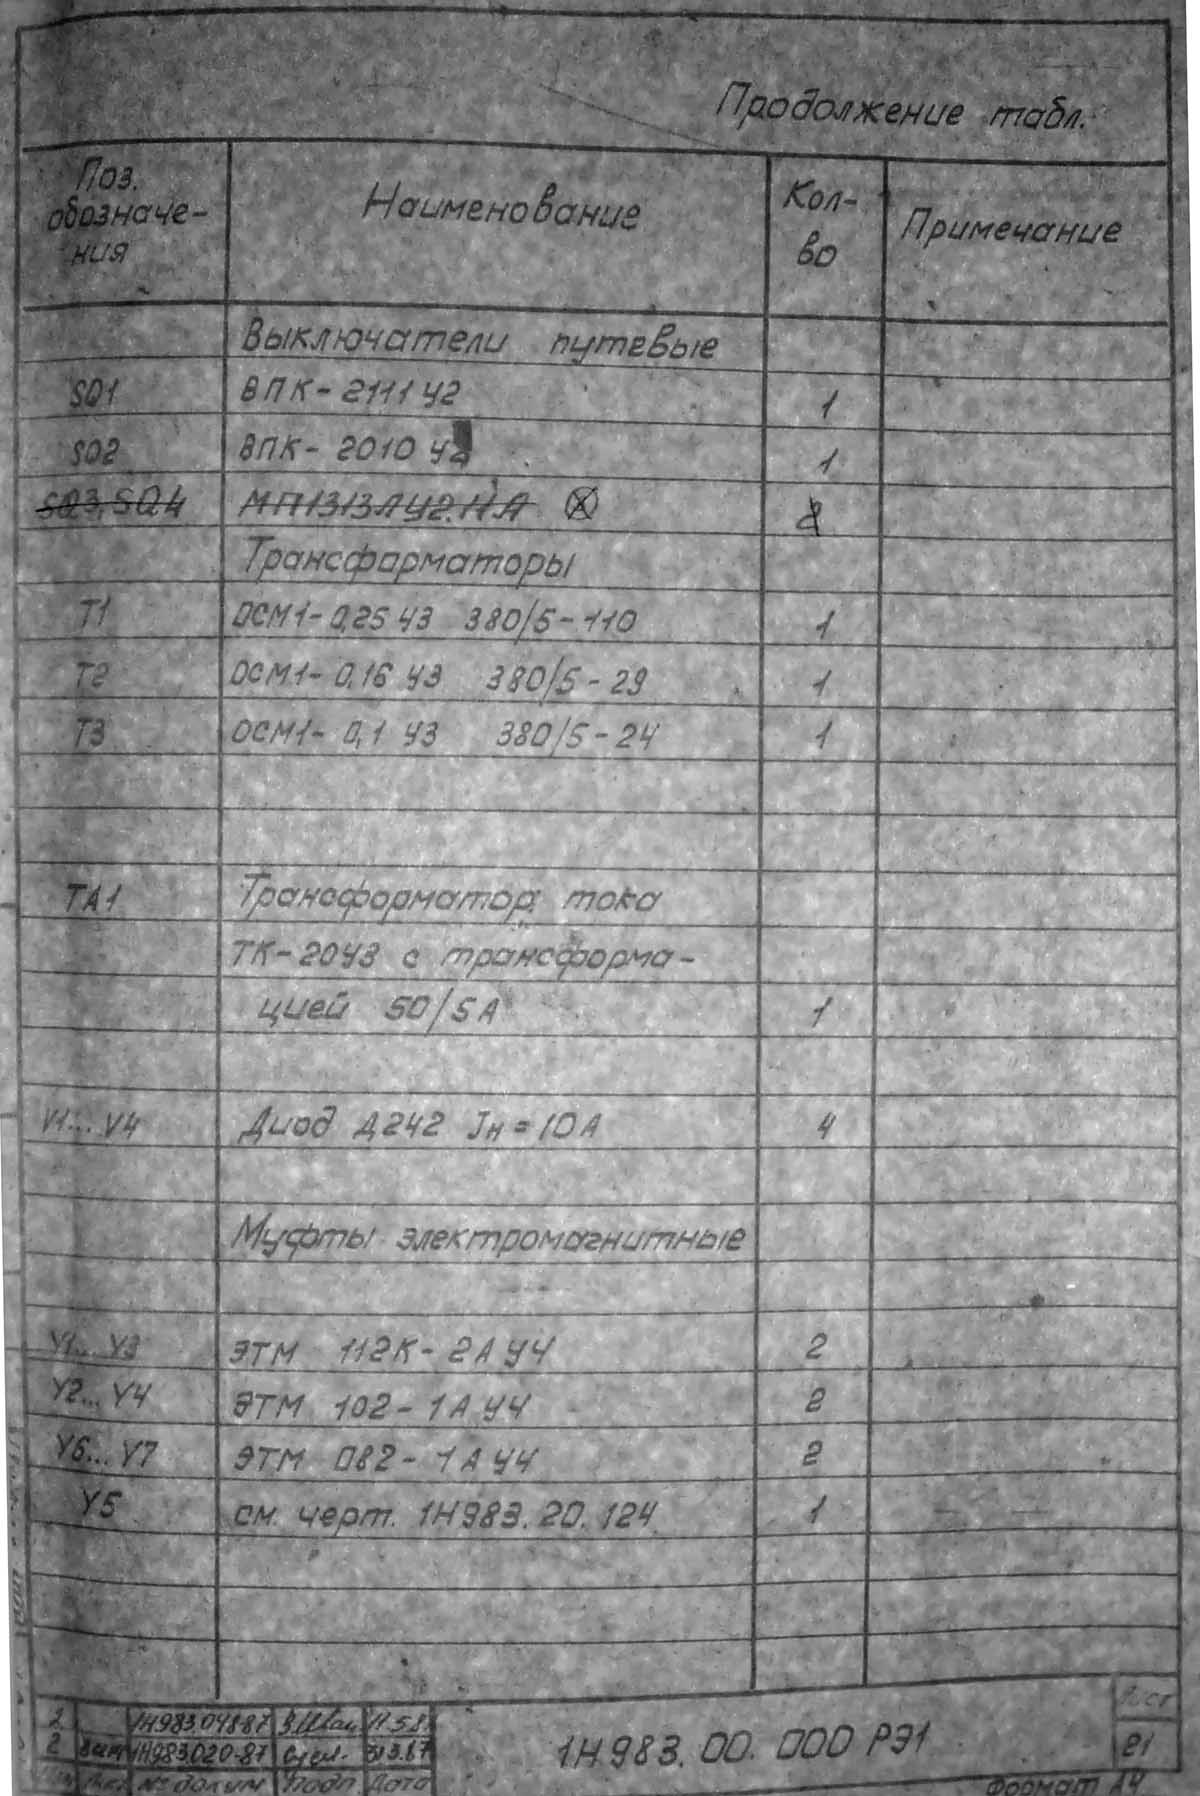 Продолжение табл.
Поз. обозначе- ния Наименование Кол- во Примечание
Выключатели путевые
SQ1 ВПК-2111 У2 1
SQ2 ВПК-2010 У2 1
SQ3, SQ4 МП1313ЛУ2.11А 2
Трансформаторы
Т1 ОСМ1-0,25 У3 380/5-110 1
Т2 ОСМ1-0,16 У3 380/5-29 1
Т3 ОСМ1-0,1 У3 380/5-24 1
ТА1 Трансформатор тока
ТК-20У3 с трансформа-
цией 50/5А 1
V1...V4 Диод Д242 Jн=10А 4
Муфты электромагнитные
У1...У3 ЭТМ 112К-2А У4 2
У2...У4 ЭТМ 102-1А У4 2
У6...У7 ЭТМ 082-1А У4 2
У5 см. черт. 1Н983.20.124 1
1Н983.048-87
2 1Н983.020-87
№ докум Подп. Дата
1Н983.00.000 РЭ1
Лист
21
Формат А4